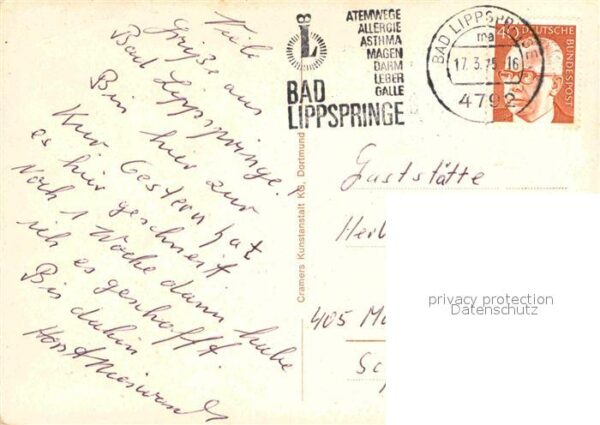 Viele
Grüße aus
Bad Lippspringe!
Bin hier zur
Kur. Gestern hat
es hier geschneit
Noch 1 Woche dann habe
ich es geschafft.
Bis dahin
Horst
Cramers Kunstanstalt KG, Dortmund
ATEMWEGE
ALLERGIE
ASTHMA
MAGEN
DARM
LEBER
GALLE
BAD
LIPPSPRINGE
BAD LIPPSPRINGE
ma
17.3.75.16
4792
40
DEUTSCHE
BUNDESPOST
Gaststätte
Herb
405 Mö
privacy protection
Datenschutz